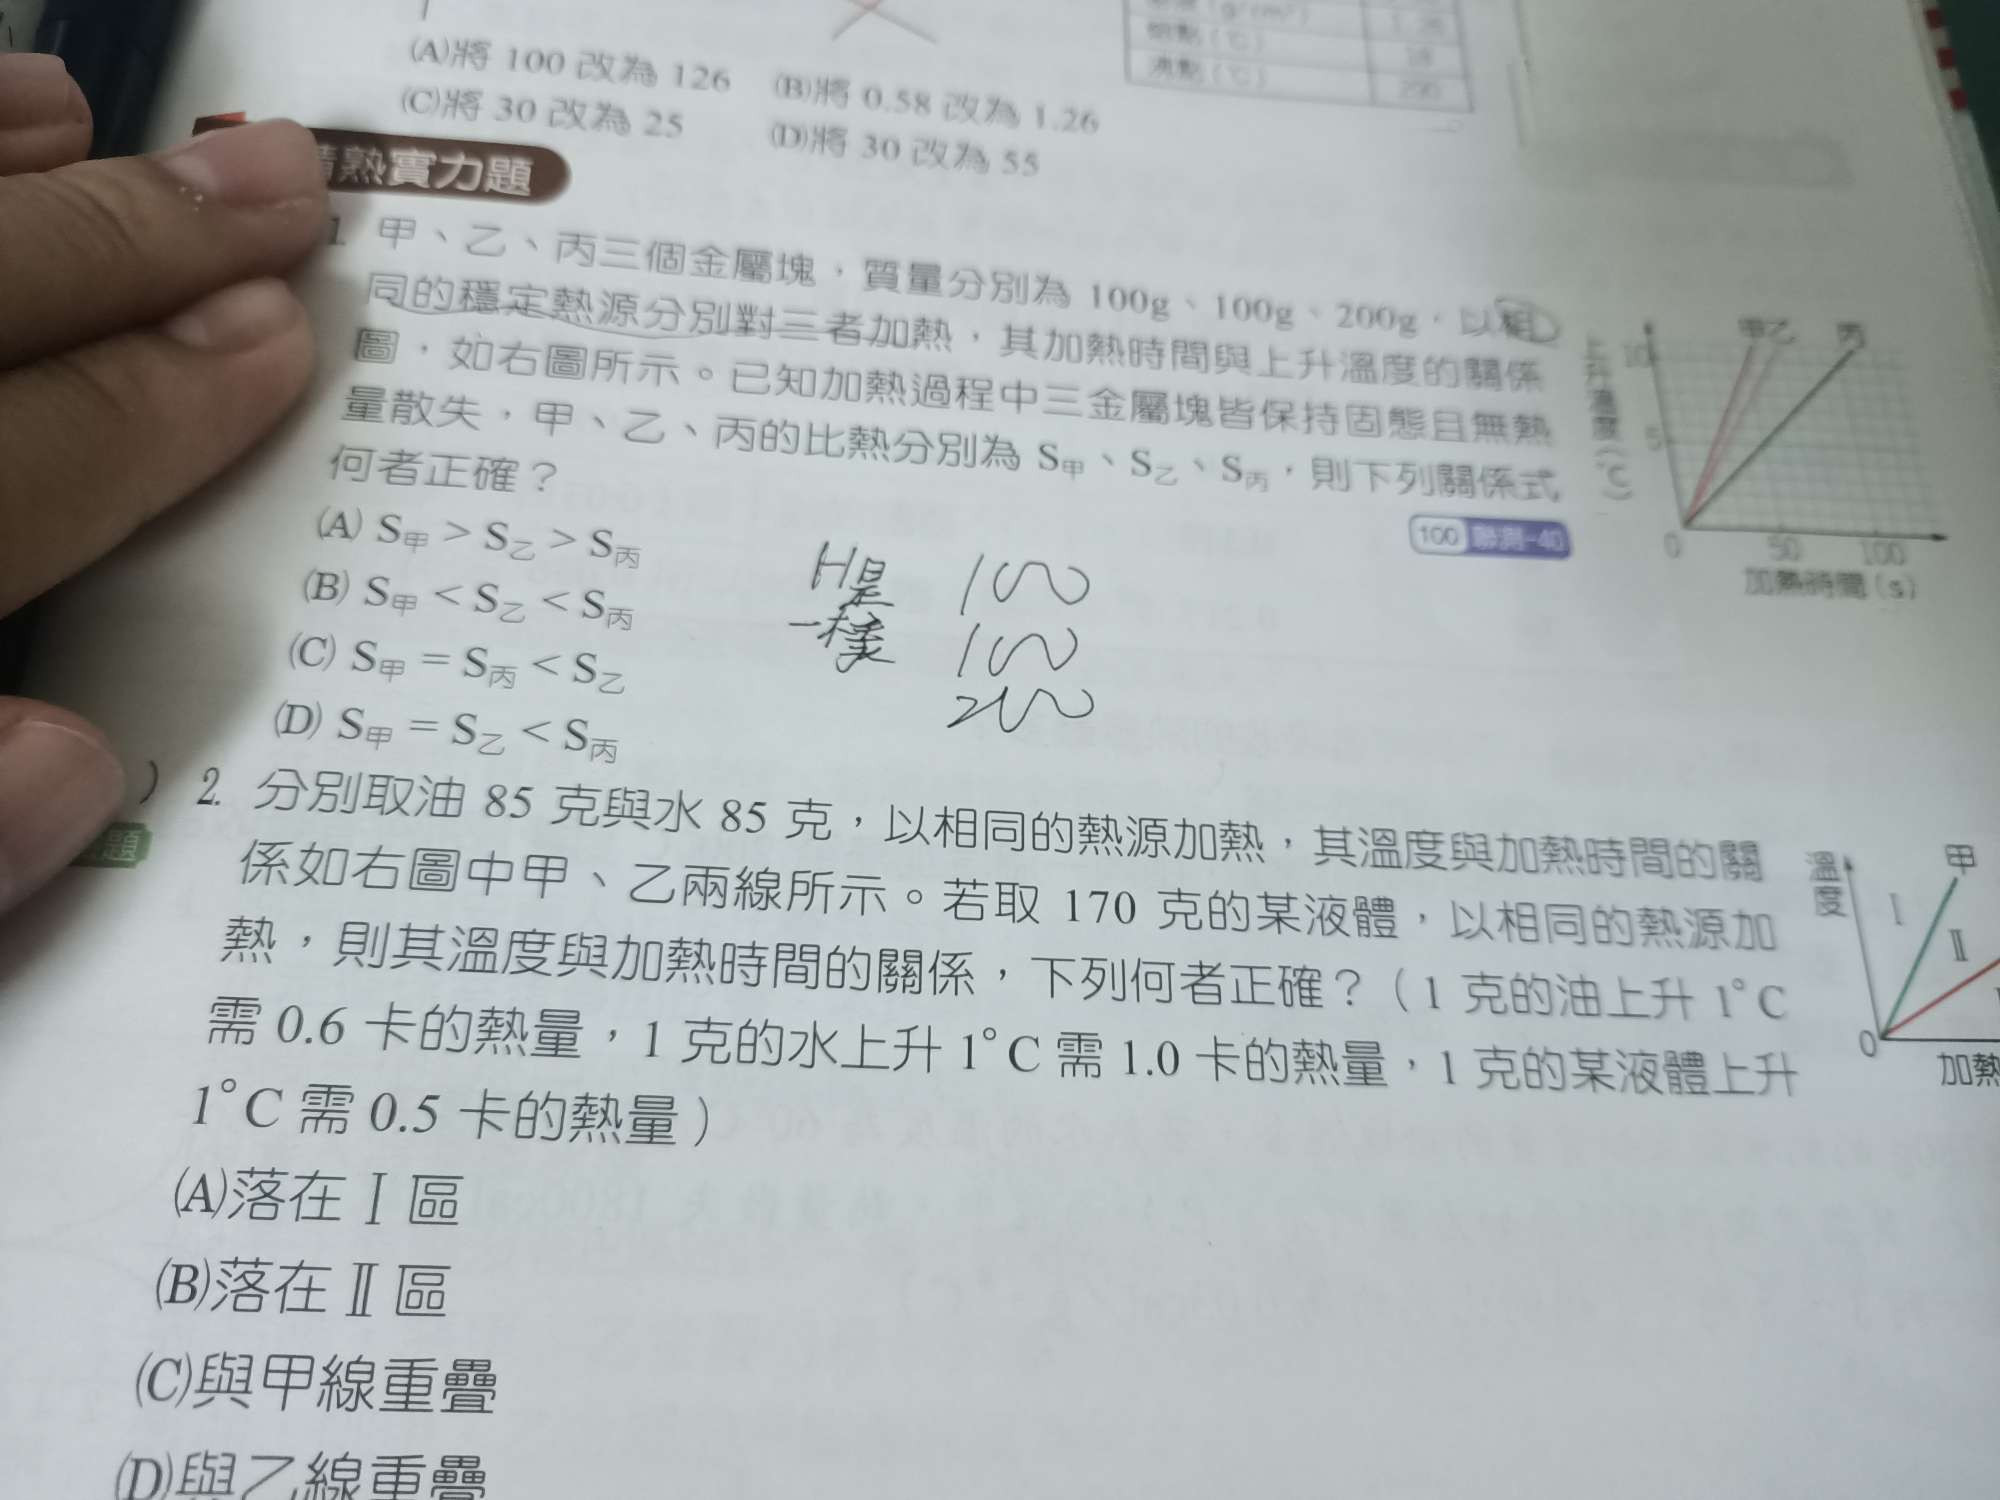 (A)將 100 改為 126 (B)將 0.58 改為 1.26
(C)將 30 改為 25 (D)將 30 改為 55
熟實力題
1. 甲、乙、丙三個金屬塊，質量分別為 100g、100g、200g，以相
同的穩定熱源分別對三者加熱，其加熱時間與上升溫度的關係
圖，如右圖所示。已知加熱過程中三金屬塊皆保持固態且無熱
量散失，甲、乙、丙的比熱分別為 S甲、S乙、S丙，則下列關係式
何者正確？
100 聯測-40
(A) S甲 > S乙 > S丙
(B) S甲 < S乙 < S丙
(C) S甲 = S丙 < S乙
(D) S甲 = S乙 < S丙
H是
一樣
100
100
200
上升溫度(℃)
甲乙 丙
10
5
0 50 100
加熱時間(s)
) 2. 分別取油 85 克與水 85 克，以相同的熱源加熱，其溫度與加熱時間的關
係如右圖中甲、乙兩線所示。若取 170 克的某液體，以相同的熱源加
熱，則其溫度與加熱時間的關係，下列何者正確？（1 克的油上升 1°C
需 0.6 卡的熱量，1 克的水上升 1°C 需 1.0 卡的熱量，1 克的某液體上升
1°C 需 0.5 卡的熱量）
題
(A)落在Ⅰ區
(B)落在Ⅱ區
(C)與甲線重疊
(D)與乙線重疊
溫度
甲
Ⅰ
Ⅱ
0
加熱